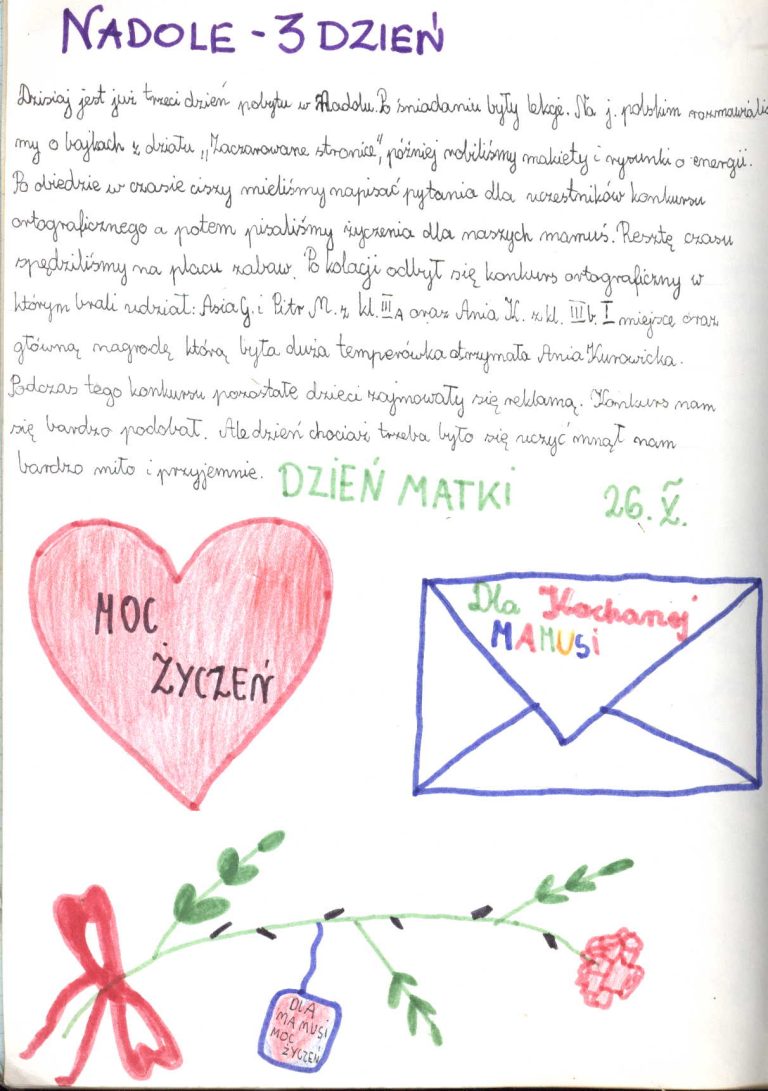 NADOLE - 3 DZIEŃ
Dzisiaj jest już trzeci dzień pobytu w Nadolu. Po śniadaniu były lekcje. Na j. polskim rozmawialiś
my o bajkach z działu „Zaczarowane stronice", później robiliśmy makiety i rysunki o energii.
Po obiedzie w czasie ciszy mieliśmy napisać pytania dla uczestników konkursu
ortograficznego a potem pisaliśmy życzenia dla naszych mamuś. Resztę czasu
spędziliśmy na placu zabaw. Po kolacji odbył się konkurs ortograficzny w
którym brali udział: Asia G. i Piotr M. z kl. III A oraz Ania K. z kl. III b. I miejsce oraz
główną nagrodę którą była duża temperówka otrzymała Ania Kurowicka.
Podczas tego konkursu pozostałe dzieci zajmowały się reklamą. Konkurs nam
się bardzo podobał. Ale dzień chociaż trzeba było się uczyć minął nam
bardzo miło i przyjemnie.
DZIEŃ MATKI 26. V.
MOC
ŻYCZEŃ
Dla Kochanej
MAMUSI
DLA
MAMUSI
MOC
ŻYCZEŃ